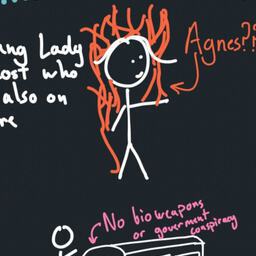 ung Lady
ost who
also on
re
Agnes??
No bioweapons
or goverment
conspiracy